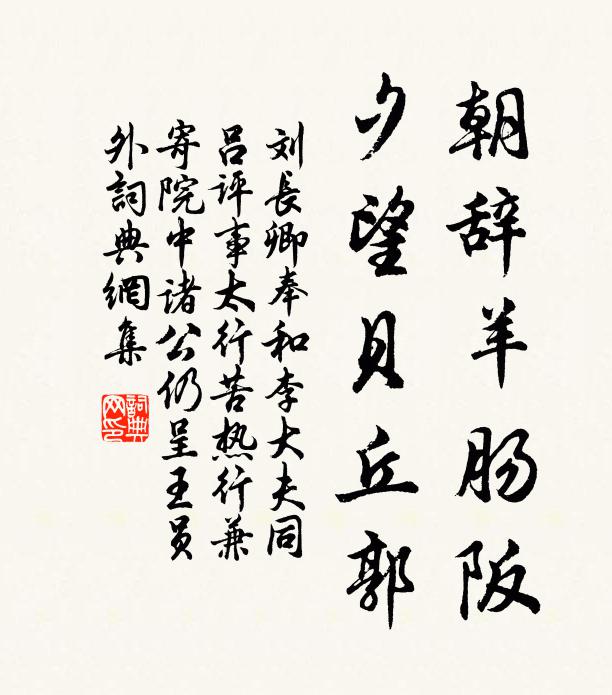 朝辞羊肠阪
夕望貝丘郭
刘長卿奉和李大夫同
吕评事太行苦热行兼
寄院中诸公仍呈王员
外詞典網集
詞典
网印